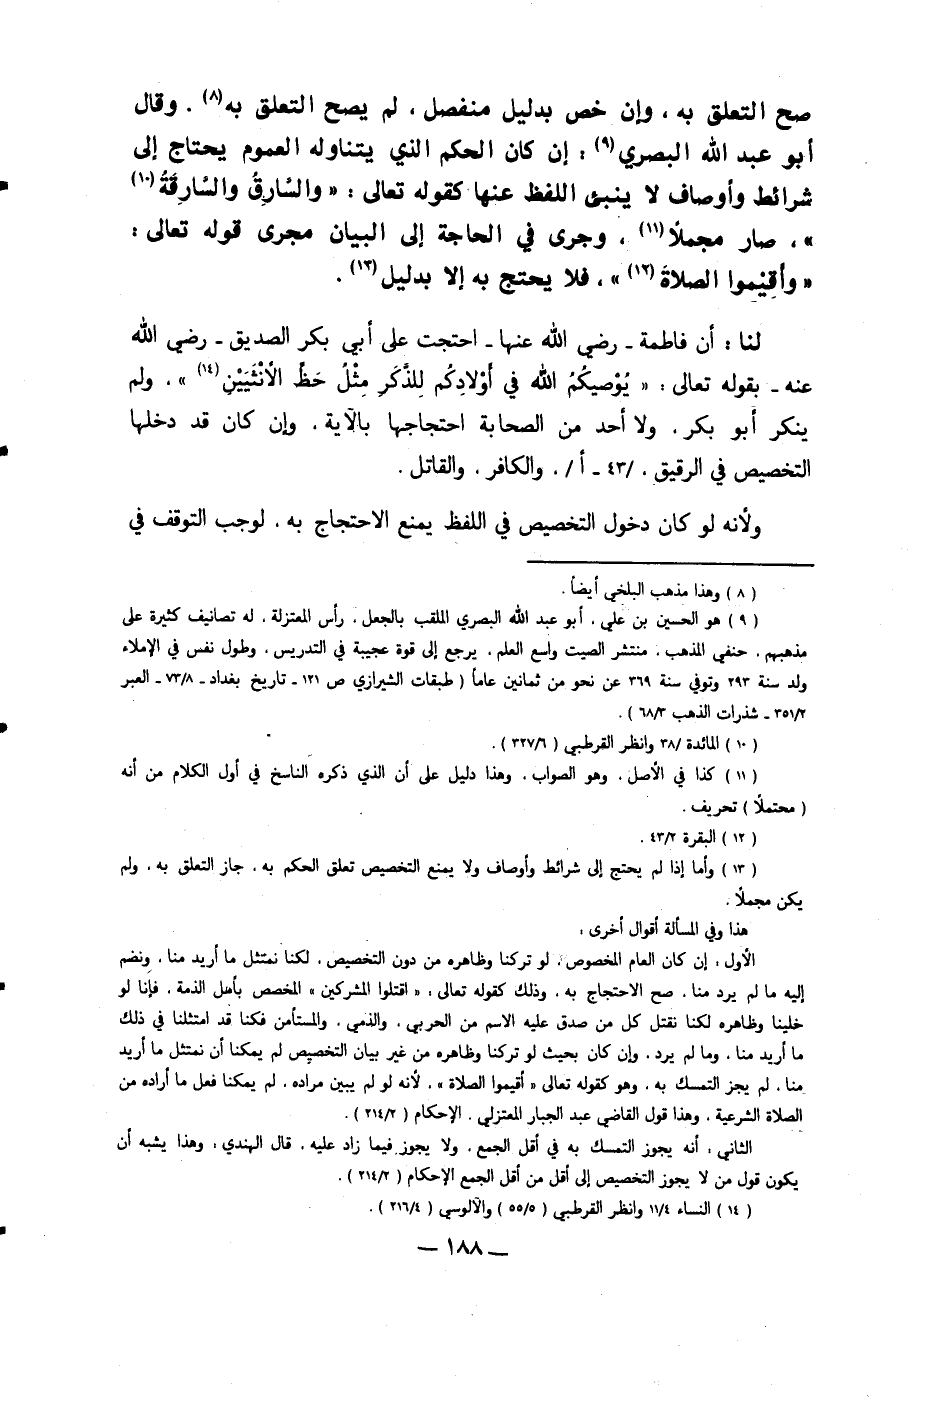 صح التعلق به ، وإن خص بدليل منفصل ، لم يصح التعلق به(٨) . وقال
أبو عبد الله البصري(٩) : إن كان الحكم الذي يتناوله العموم يحتاج إلى
شرائط وأوصاف لا ينبئ اللفظ عنها كقوله تعالى : « والسَّارِقُ والسَّارِقَةُ(١٠)
» ، صار مجملاً(١١) ، وجرى في الحاجة إلى البيان مجرى قوله تعالى :
« وأقيْموا الصلاةَ(١٢) » ، فلا يحتج به إلا بدليل(١٣) .
لنا : أن فاطمة ـ رضي الله عنها ـ احتجت على أبي بكر الصديق ـ رضي الله
عنه ـ بقوله تعالى : « يُوْصيكُمُ الله في أوْلادِكُم لِلذَّكَرِ مِثْلُ حَظِّ الأنْثَيَيْنِ(١٤) » ، ولم
ينكر أبو بكر ، ولا أحد من الصحابة احتجاجها بالآية ، وإن كان قد دخلها
التخصيص في الرقيق ، /٤٣ ـ أ / ، والكافر ، والقاتل .
ولأنه لو كان دخول التخصيص في اللفظ يمنع الاحتجاج به ، لوجب التوقف في
( ٨ ) وهذا مذهب البلخي أيضاً .
( ٩ ) هو الحسين بن علي ، أبو عبد الله البصري الملقب بالجعل ، رأس المعتزلة ، له تصانيف كثيرة على
مذهبهم ، حنفي المذهب ، منتشر الصيت واسع العلم ، يرجع إلى قوة عجيبة في التدريس ، وطول نفس في الإملاء
ولد سنة ٢٩٣ وتوفي سنة ٣٦٩ عن نحو من ثمانين عاماً ( طبقات الشيرازي ص ١٢١ ـ تاريخ بغداد ـ ٧٣/٨ ـ العبر
٣٥١/٢ ـ شذرات الذهب ٦٨/٣ ) .
( ١٠ ) المائدة /٣٨ وانظر القرطبي ( ٣٢٧/٦ ) .
( ١١ ) كذا في الأصل ، وهو الصواب ، وهذا دليل على أن الذي ذكره الناسخ في أول الكلام من أنه
( محتملاً ) تحريف .
( ١٢ ) البقرة ٤٣/٢ .
( ١٣ ) وأما إذا لم يحتج إلى شرائط وأوصاف ولا يمنع التخصيص تعلق الحكم به ، جاز التعلق به ، ولم
يكن مجملاً .
هذا وفي المسألة أقوال أخرى :
الأول : إن كان العام المخصوص ، لو تركنا وظاهره من دون التخصيص ، لكنا نمتثل ما أريد منا ، ونضم
إليه ما لم يرد منا ، صح الاحتجاج به ، وذلك كقوله تعالى : « اقتلوا المشركين » المخصص بأهل الذمة ، فإنا لو
خلينا وظاهره لكنا نقتل كل من صدق عليه الاسم من الحربي ، والذمي ، والمستأمن فكنا قد امتثلنا في ذلك
ما أريد منا ، وما لم يرد ، وإن كان بحيث لو تركنا وظاهره من غير بيان التخصيص لم يمكنا أن نمتثل ما أريد
منا ، لم يجز التمسك به ، وهو كقوله تعالى « أقيموا الصلاة » ، لأنه لو لم يبين مراده ، لم يمكنا فعل ما أراده من
الصلاة الشرعية ، وهذا قول القاضي عبد الجبار المعتزلي . الإحكام ( ٢١٤/٢ ) .
الثاني : أنه يجوز التمسك به في أقل الجمع ، ولا يجوز فيما زاد عليه ، قال الهندي : وهذا يشبه أن
يكون قول من لا يجوز التخصيص إلى أقل من أقل الجمع الإحكام ( ٢١٤/٢ ) .
( ١٤ ) النساء ١١/٤ وانظر القرطبي ( ٥٥/٥ ) والآلوسي ( ٢١٦/٤ ) .
ـ ١٨٨ ـ